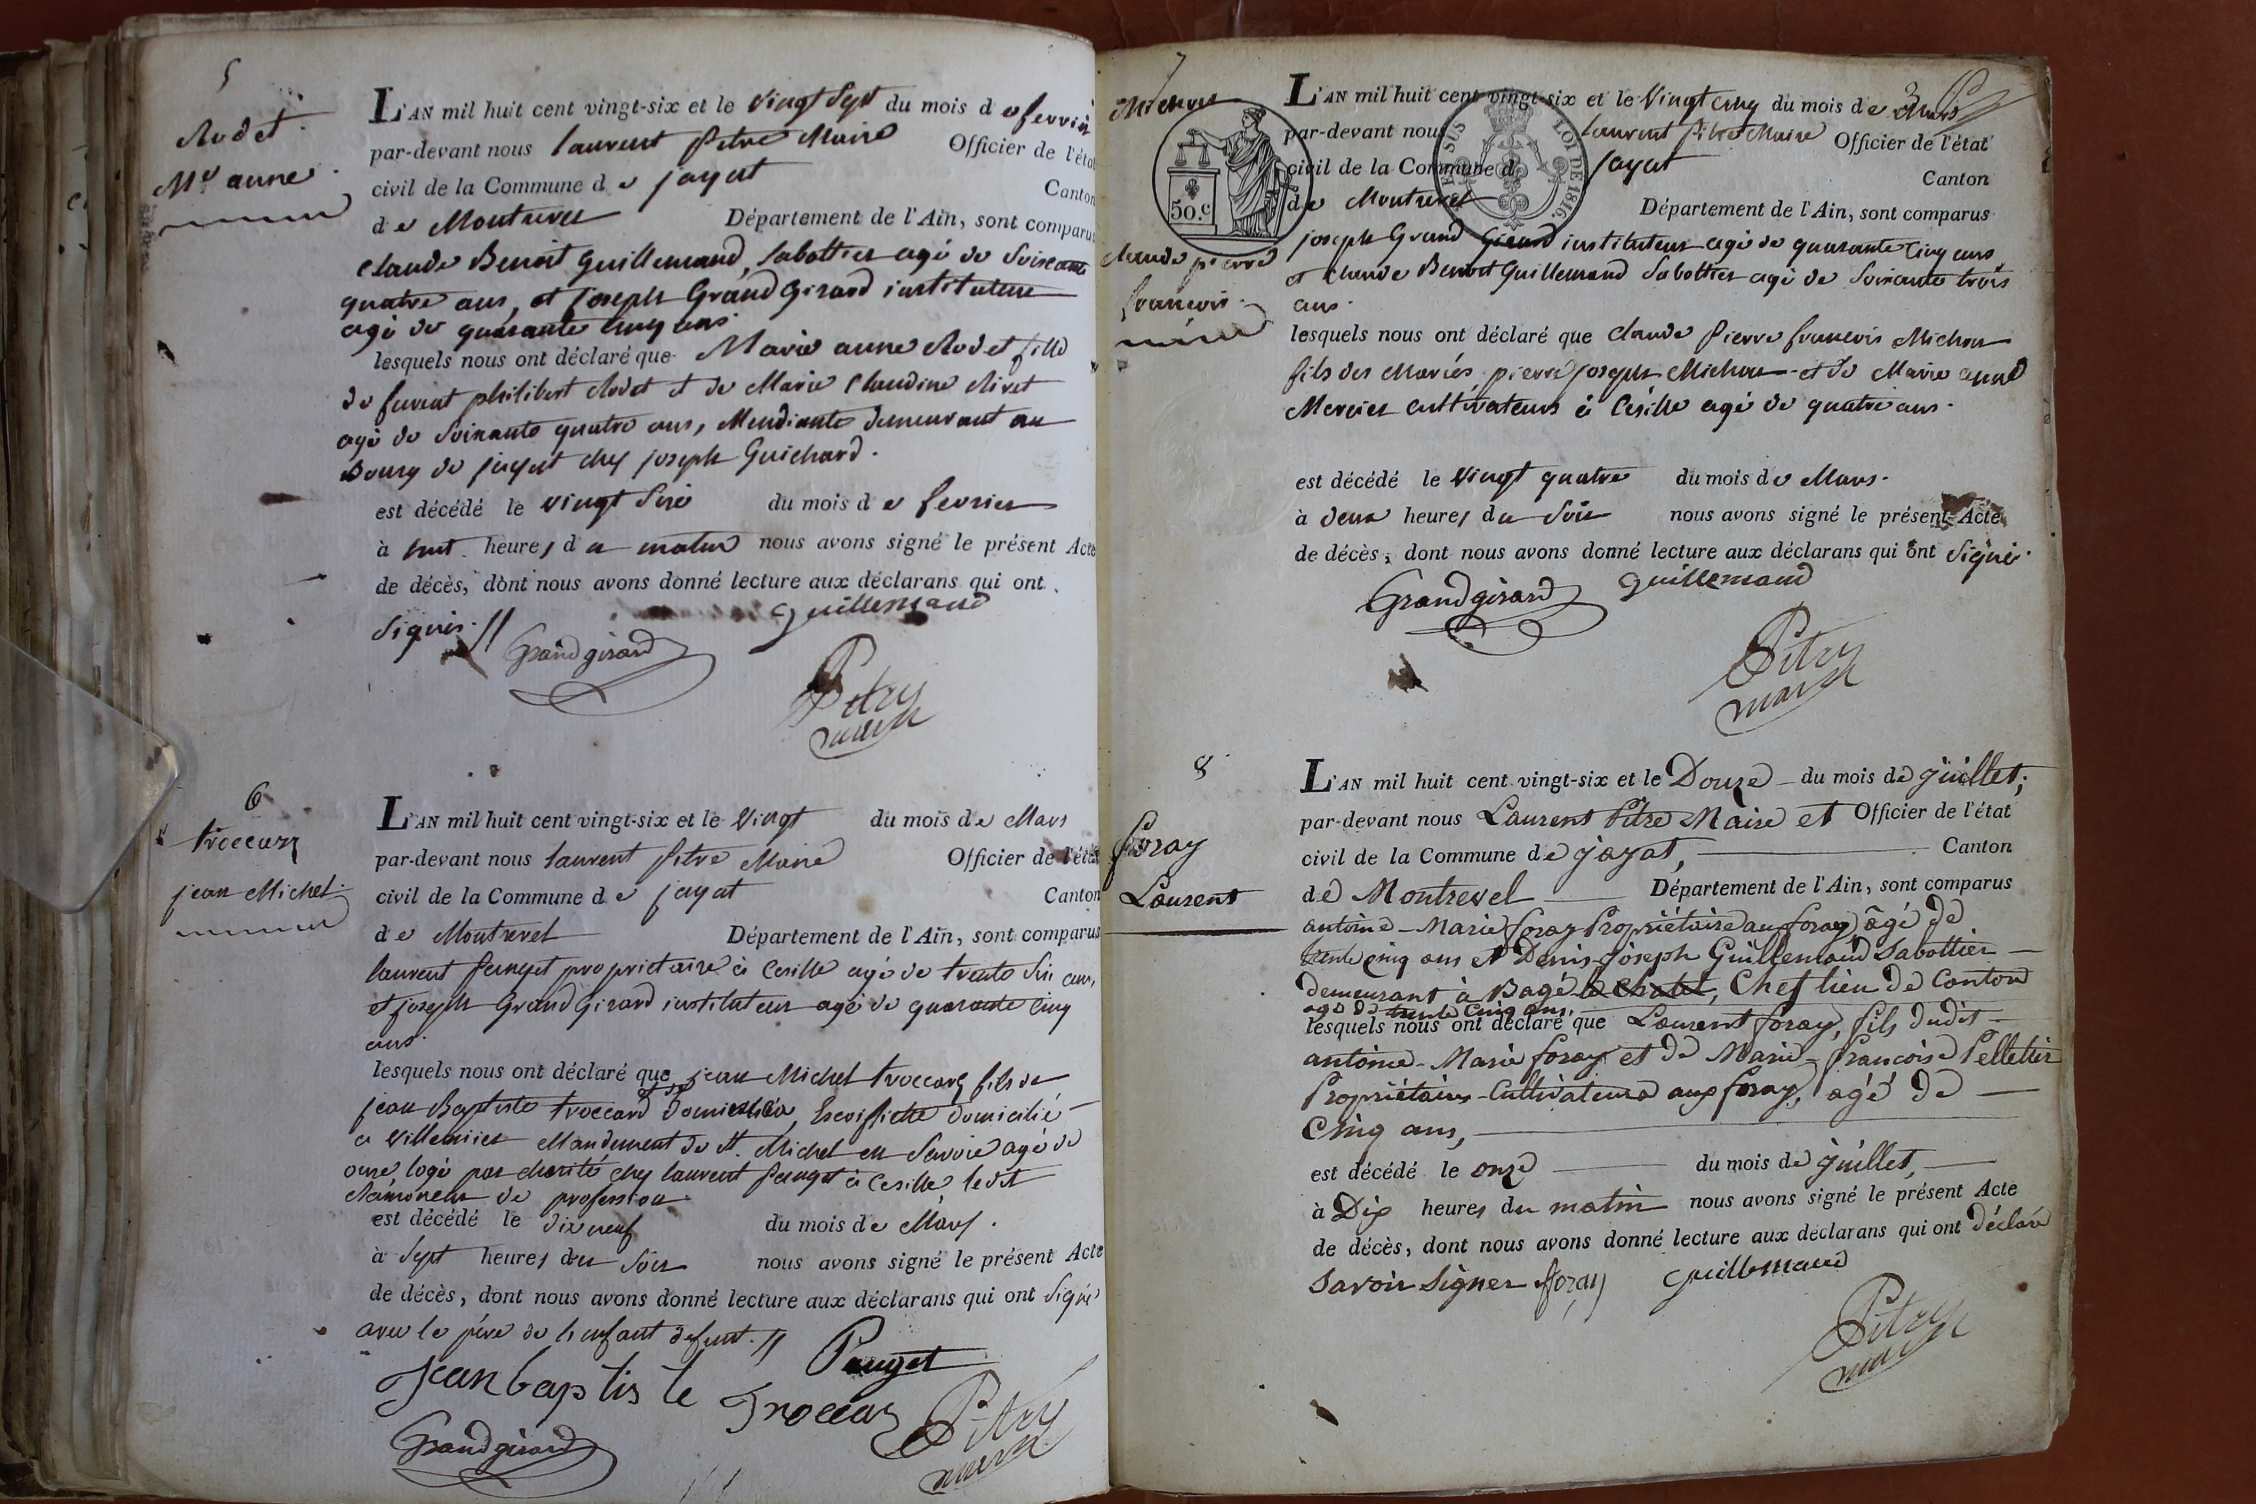 5
Rodet
Mie anne
L'AN mil huit cent vingt-six et le vingt Sept du mois de fevrier
par-devant nous laurent pitre Maire Officier de l'état
civil de la Commune de jayat Canton
de Montrevel Département de l'Ain, sont comparus
Claude Benoit Guillemaud, Sabottier agé de Soixante
quatre ans, et joseph Grand Girard instituteur
agé de quarante cinq ans.
lesquels nous ont déclaré que Marie anne Rodet fille
de philibert Rodet et de Marie Claudine
agé de Soixante quatre ans, Mendiante demeurant au
Bourg de jayat chez joseph Guichard.
est décédé le vingt Sixe du mois de fevrier
à huit heures du matin nous avons signé le présent Acte
de décès, dont nous avons donné lecture aux déclarans qui ont
Signés.//
Guillemaud
Grandgirard
Pitre
maire
6
troccaz
jean Michel
L'AN mil huit cent vingt-six et le vingt du mois de Mars
par-devant nous laurent pitre Maire Officier de l'état
civil de la Commune de jayat Canton
de Montrevel Département de l'Ain, sont comparus
laurent pauget proprietaire à Cesille agé de trente Six ans,
et joseph Grand Girard instituteur agé de quarante cinq
ans.
lesquels nous ont déclaré que jean Michel troccaz fils de
jean Baptiste troccard domicilié
à Mandement de St. Michel en Savoie agé de
onze logé par charité chez laurent pauget à Cesille ledit
de profession
est décédé le dix neuf du mois de Mars.
à Sept heures du Soir nous avons signé le présent Acte
de décès, dont nous avons donné lecture aux déclarans qui ont Signé
avec le père de l'enfant defunt.//
Pauget
Jean baptiste Troccaz
Grandgirard
Pitre
maire
7
Michon
Claude pierre
françois
50.C
LOI DE 1816.
3
L'AN mil huit cent vingt-six et le Vingt cinq du mois de Mars
par-devant nous Laurent pitre Maire Officier de l'état
civil de la Commune d jayat Canton
de Montrevel Département de l'Ain, sont comparus
joseph Grand Girard instituteur agé de quarante Cinq ans
et Claude Benoit Guillemaud Sabottier agé de Soixante trois
ans.
lesquels nous ont déclaré que Claude Pierre françois Michon
fils des Mariés pierre joseph Michon et de Marie anne
Mercier cultivateurs à Cesille agé de quatre ans.
est décédé le vingt quatre du mois de Mars.
à deux heures du Soir nous avons signé le présent Acte
de décès, dont nous avons donné lecture aux déclarans qui ont Signés.
Grandgirard Guillemaud
Pitre
maire
8
foray
Laurent
L'AN mil huit cent vingt-six et le Douze du mois de juillet;
par-devant nous Laurent Pitre Maire et Officier de l'état
civil de la Commune de jayat, Canton
de Montrevel Département de l'Ain, sont comparus
antoine-Marie foray Propriétaire aux foray âgé de
trente cinq ans et Denis-joseph Guillemaud Sabottier
demeurant à Bagé le Chatel, Chef lieu de Canton
agé de trente cinq ans,
lesquels nous ont déclaré que Laurent foray, fils dudit
antoine-Marie foray et de Marie-françoise Pelletier
Propriétaires-Cultivateurs aux foray, agé de
Cinq ans,
est décédé le onze du mois de juillet,
à Dix heures du matin nous avons signé le présent Acte
de décès, dont nous avons donné lecture aux déclarans qui ont déclaré
Savoir Signer foray Guillemaud
Pitre
maire